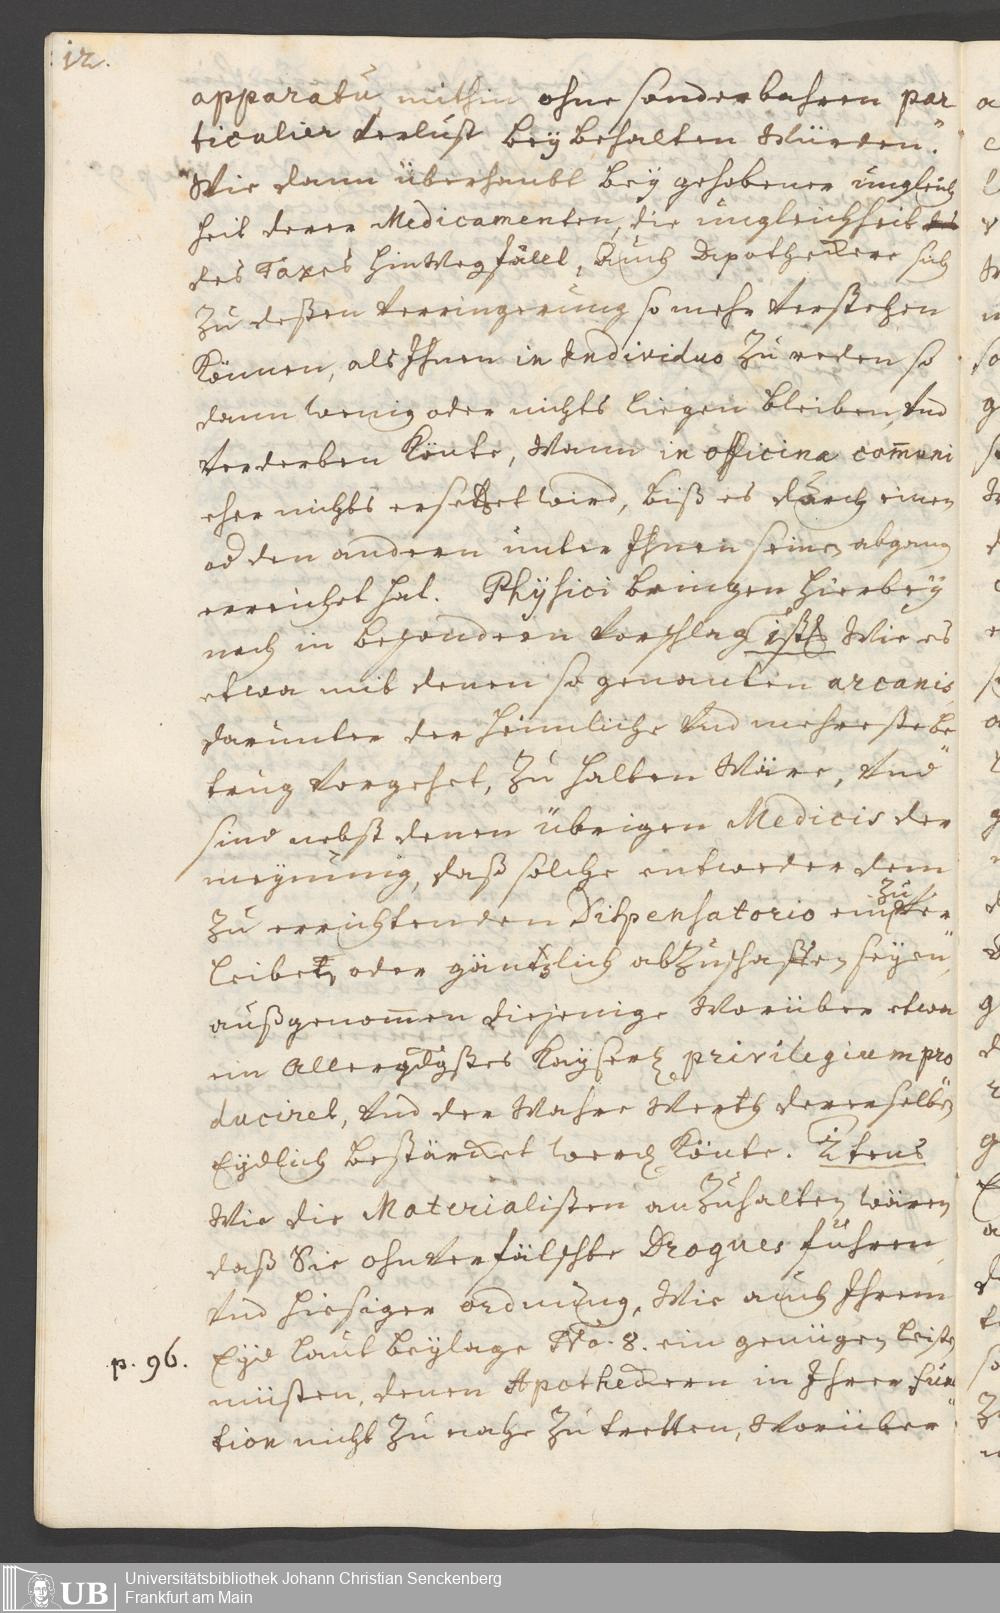 12.
apparatu, mithin ohne sonderbahren par
ticulier Verlust beÿbehalten Würden.
Wie dann überhaubt beÿ gehobener ungleich
heit derer Medicamenten, die ungleichheit
des Taxes hinWegfället, Auch Apothecker sich
Zu deßen Verringerung so mehr Verstehen
Können, als Ihnen in Individuo Zu reden so
dann wenig oder nichts liegen bleiben, Und
Verderben Könte, Wann in officina com̅uni
eher nichts ersetzet wird, biß es durch einen
od den andern unter Ihnen seinen abgang
erreichet hat. Phÿsici bringen hierbeÿ
noch in besondern Vorschlag Wie es
etwa mit denen so genanten arcanis
darunter der heimliche Und mehreste be
trug Vorgehet, Zu halten Wäre, Und
sind nebst denen übrigen Medicis der
meÿnung, daß solche entweder dem
Zu errichtenden Dispensatorio einZuver
leiben, oder gäntzlich abZuschaffen seÿen,
außgenom̅en diejenige Worüber etwa
ein Allergdgstes Kaÿserl privilegium pro
duciret, Und der Wahre Werth dererselben
Eÿdlich bestärcket werd Könte. 2tens
Wie die Materialisten anZuhalten wären
daß Sie ohnVerfälschte Drogues führen,
Und hiesiger ordnung, Wie auch Ihrem
p. 96. Eÿd laut beÿlage No. 8. ein genügen leisten
müsten, denen Apotheckern in Ihrer func
tion nicht Zu nahe Zu tretten, Worüber
UB Universitätsbibliothek Johann Christian Senckenberg
Frankfurt am Main